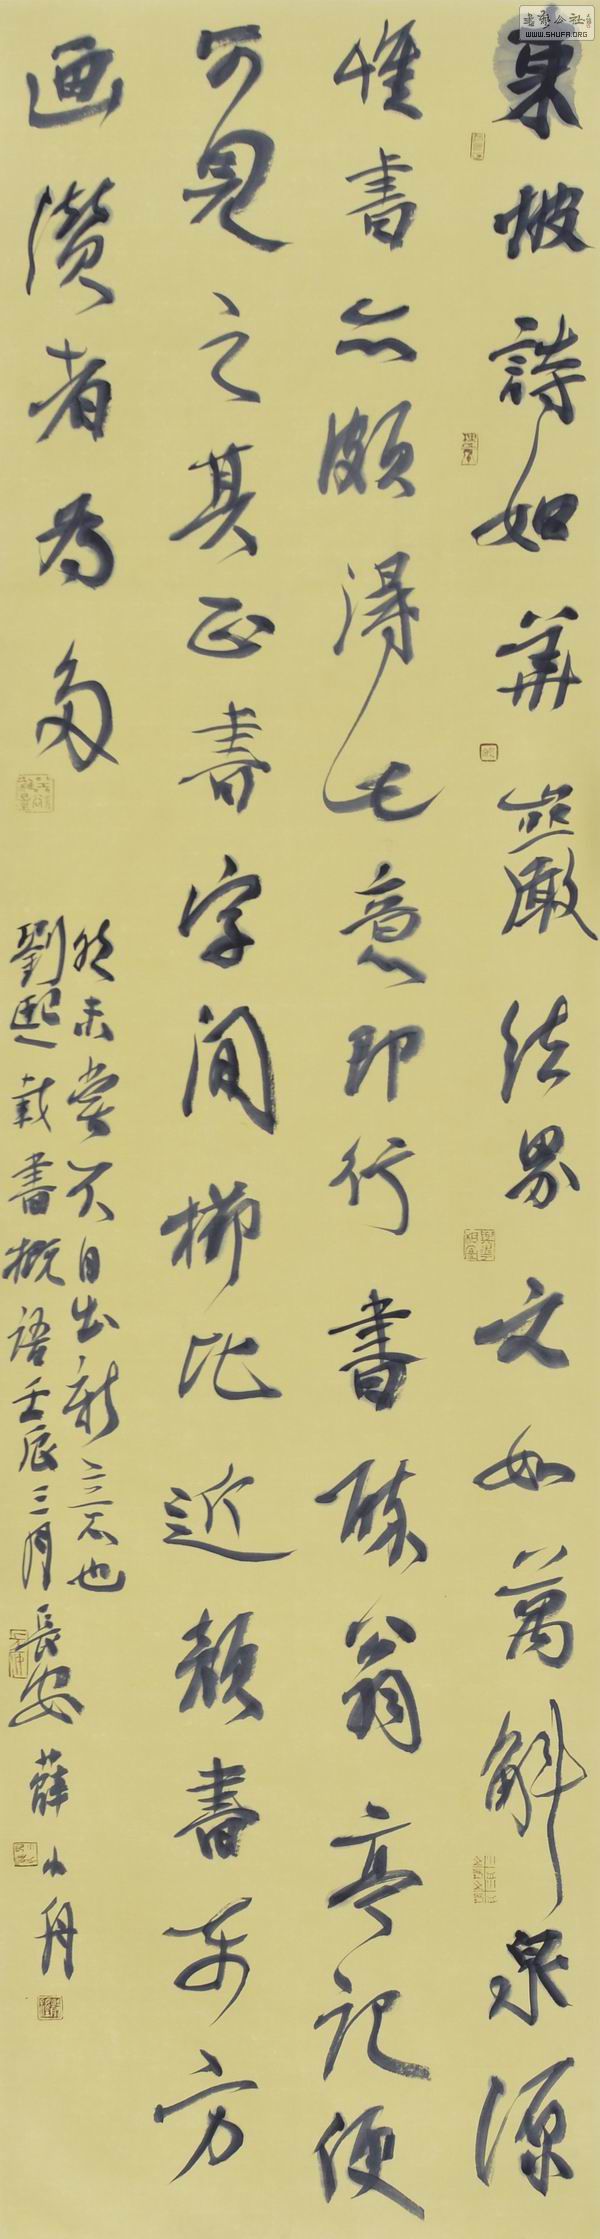 東坡詩如華嚴結界文如萬斛泉源
惟書亦頗得此意即行書醉翁亭記便
可見之其正書字間櫛比近顏書東方
画讚者為多
然未嘗不自出新意也
劉熙載書概語壬辰三月長安薛小舟
書藝公社
WWW.SHUFA.ORG